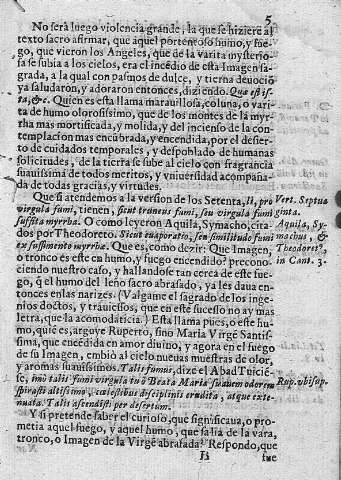 5
No serà luego violencia grande, la que se hiziere al
texto sacro afirmar, que aquel portentoso humo, y fue-
go, que vieron los Angeles, que de la varita mysterio-
sa se subia a los cielos, era el incẽdio de esta Imagen sa-
grada, a la qual con pasmos de dulce, y tierna deuociõ
ya saludaron, y adoraron entonces, diziendo. Quæ est is-
ta, &c. Quien es esta llama marauillosa, coluna, o vari-
ta de humo olorosissimo, que de los montes de la myr-
rha mas mortificada, y molida, y del incienso de la con-
templacion mas encũbrada, y encendida, por el desier-
to de cuidados temporales, y despoblado de humanas
solicitudes, de la tierra se sube al cielo con fragrancia
suauissima de todos meritos, y vniuersidad acompaña-
da de todas gracias, y virtudes.
Que si atendemos a la version de los Setenta, li, pro
virgula fumi, tienen, sicut truncus fumi, seu virgula fumi
suffita myrrha. O como leyeron Aquila, Symacho, cita-
dos por Theodoreto. Sicut euaporatio, seu similitudo fumi
ex suffimento myrrhæ. Que es, como dezir: Que Imagen,
o tronco es este en humo, y fuego encendido? preconо-
ciendo nuestro caso, y hallandose tan cerca de este fue-
go, q̃ el humo del leño sacro abrasado, ya les daua en-
tonces en las narizes. (Valgame el sagrado de los inge-
nios doctos, y trauiessos, que en este sucesso no ay mas
letra, que la acomodaticia.) Esta llama pues, o este hu-
mo, quiẽ es, arguye Ruperto, sino Maria Virgẽ Santis-
sima, que encẽdida en amor diuino, y agora en el fuego
de su Imagen, embiò al cielo nueuas muestras de olor,
y aromas suauissimos. Talis fumus, dize el Abad Tuiciẽ-
se, imò talis fumi virgula tu ò Beata Maria suauem odorem
spirasti altissimo, cælestibus disciplinis erudita, atque exte-
nuata. Talis ascendisti per desertum.
Y si pretende saber el curioso, què significaua, o pro-
metia aquel fuego, y aquel humo, que salia de la vara,
tronco, o Imagen de la Virgẽ abrasada? Respondo, que
fue
Vers. Septua
ginta.
Aquila, Sy-
machus, &
Theodoret9,
in Cant. 3.
Rup. vbi sup.